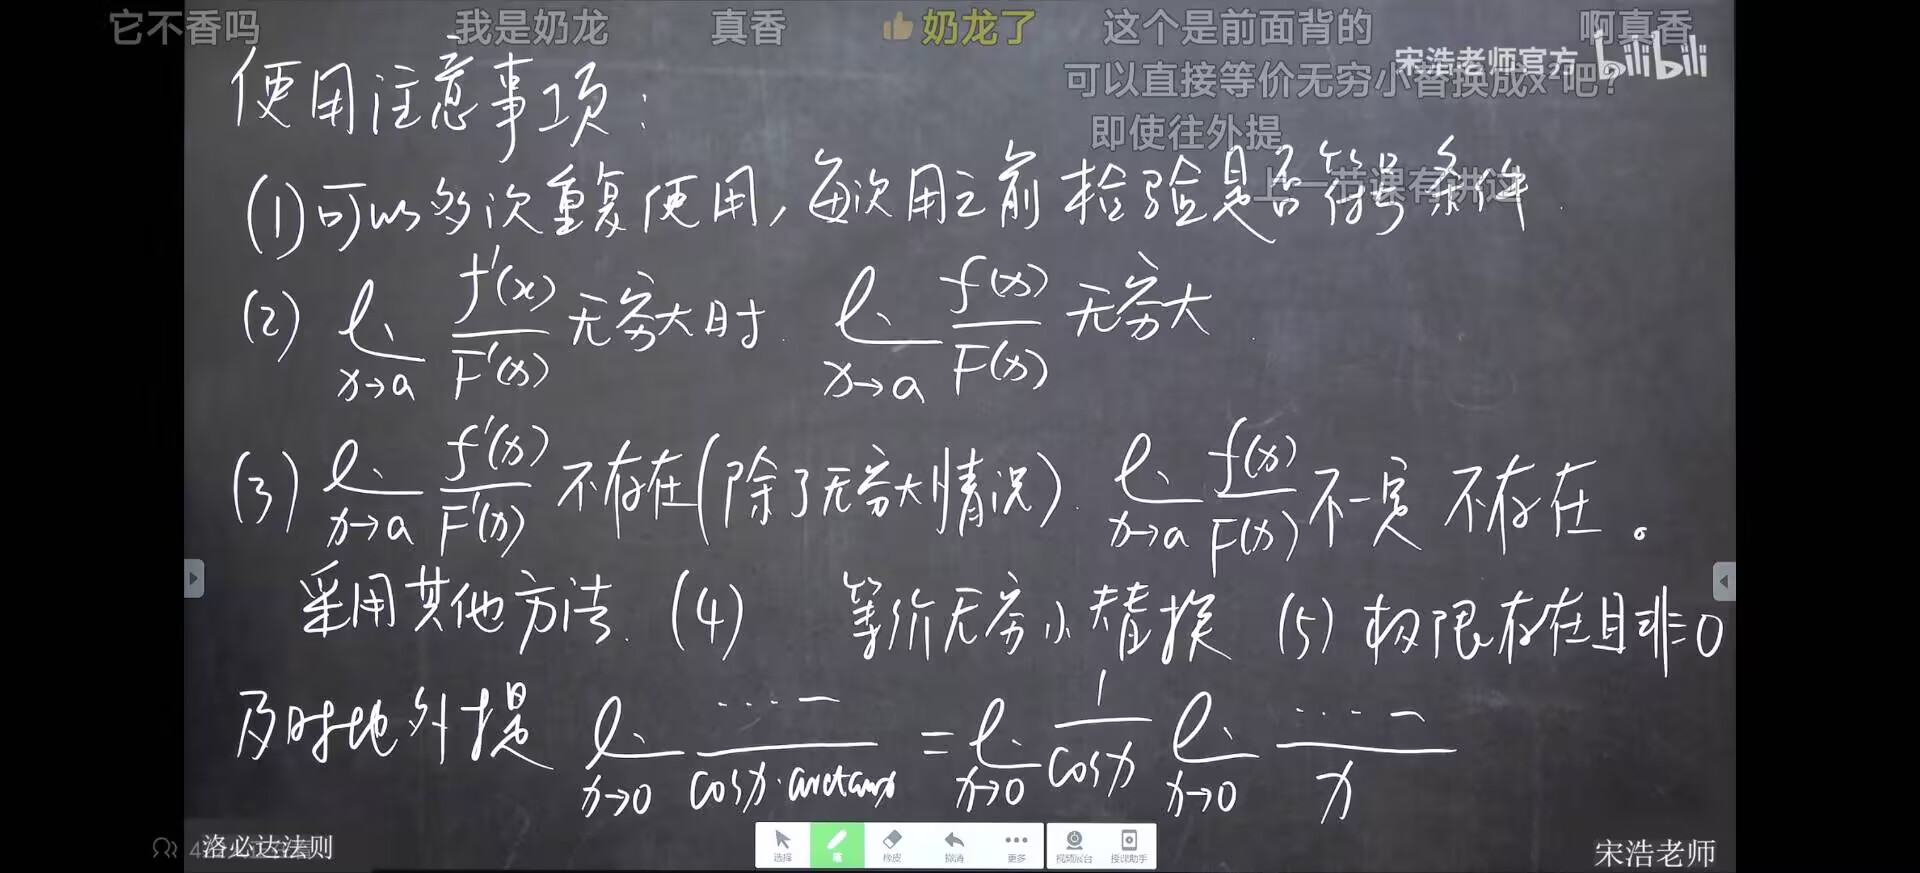 它不香吗 我是奶龙 真香 奶龙了 这个是前面背的 啊真香
宋浩老师官方 bilibili
可以直接等价无穷小替换成x吧?
即使往外提
上一节课有讲过
使用注意事项:
(1)可以多次重复使用,每次用之前检验是否符号条件.
(2) lim x→a f'(x)/F'(x) 无穷大时. lim x→a f(x)/F(x) 无穷大.
(3) lim x→a f'(x)/F'(x) 不存在(除了无穷大情况). lim x→a f(x)/F(x) 不一定 不存在。
采用其他方法. (4) 等价无穷小替换 (5) 极限存在且非0
及时地外提 lim x→0 ····一/cosx·arctanx = lim x→0 1/cosx lim x→0 ····一/x
选择 笔 橡皮 撤消 更多 视频展台 授课助手
洛必达法则
宋浩老师